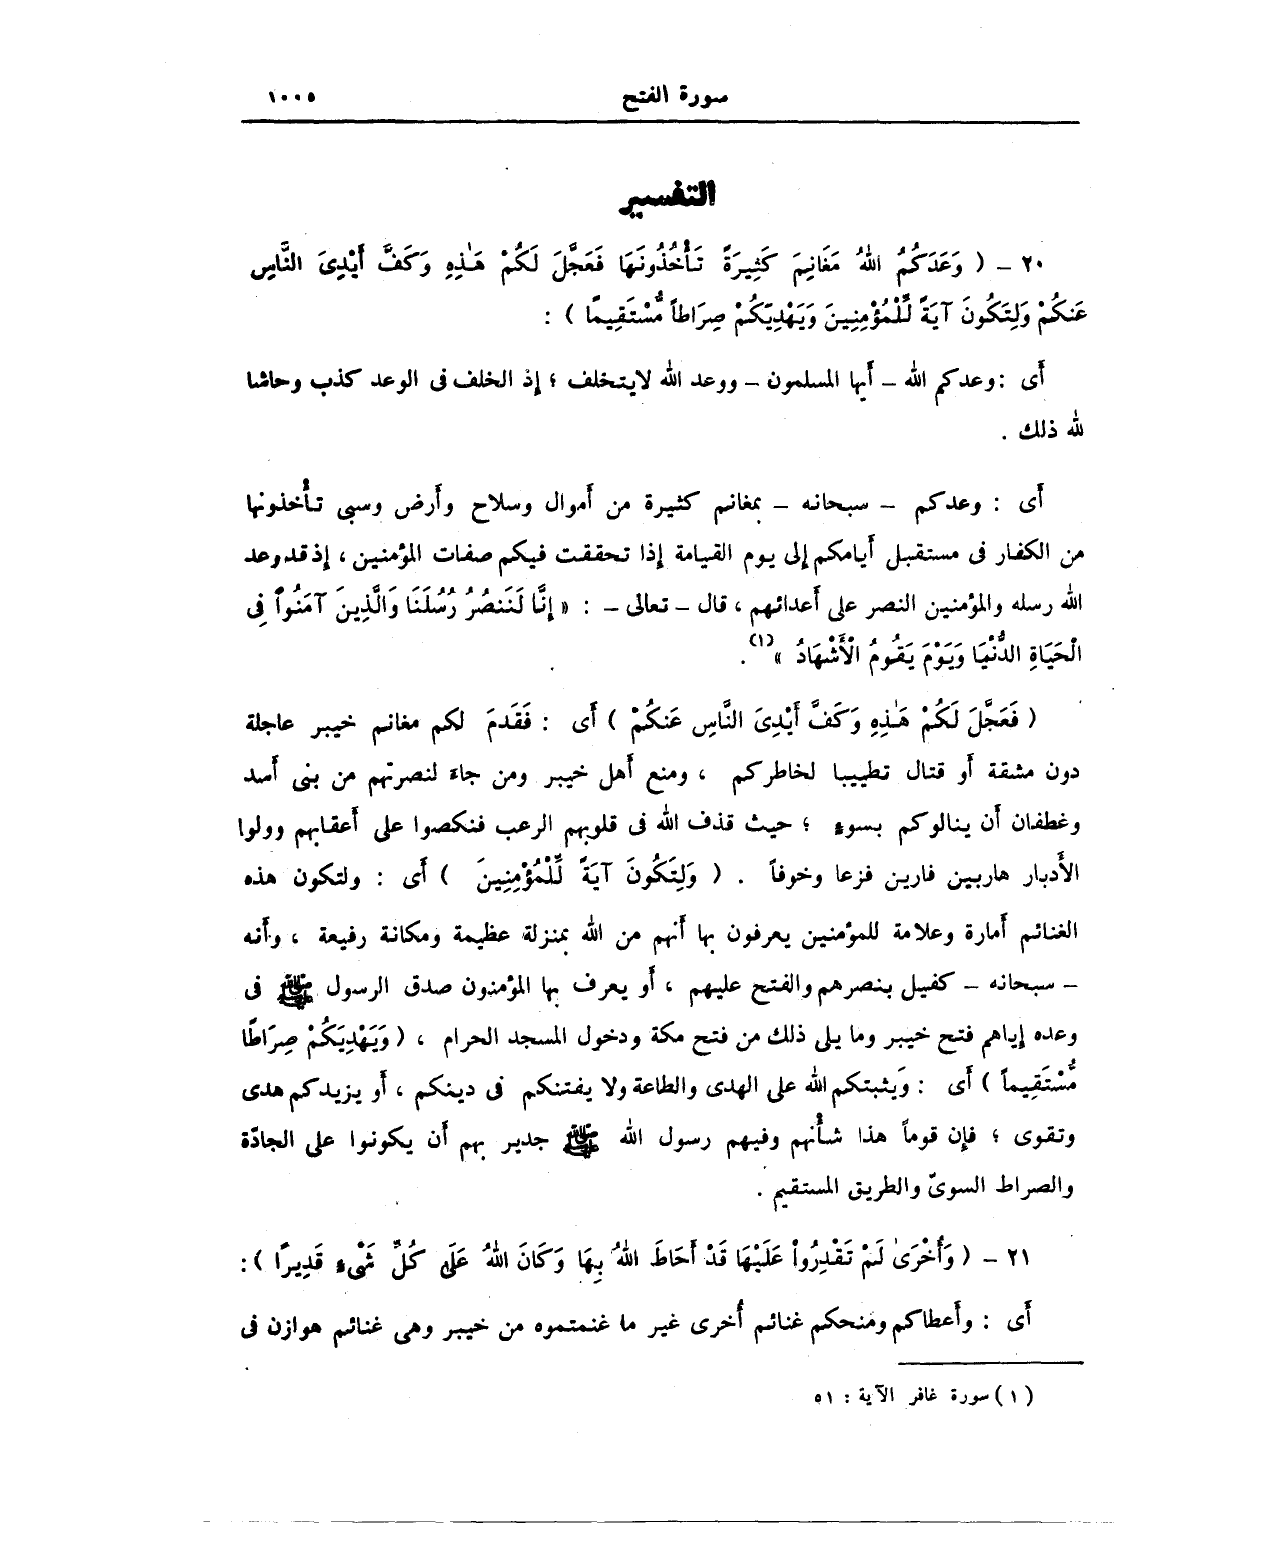 سورة الفتح ١٠٠٥
التفسير
٢٠ – ( وَعَدَكُمُ اللهُ مَغَانِمَ كَثِيرَةً تَأْخُذُونَهَا فَعَجَّلَ لَكُمْ هَـٰذِهِ وَكَفَّ أَيْدِىَ النَّاسِ
عَنكُمْ وَلِتَكُونَ آيَةً لِّلْمُؤْمِنِينَ وَيَهْدِيَكُمْ صِرَاطاً مُّسْتَقِيمًا ) :
أَى : وعدكم الله – أَيها المسلمون – ووعد الله لايتخلف ؛ إذ الخلف فى الوعد كذب وحاشا
لله ذلك .
أَى : وعدكم – سبحانه – بمغانم كثيرة من أَموال وسلاح وأَرض وسبى تأْخذونها
من الكفار فى مستقبل أَيامكم إلى يوم القيامة إذا تحققت فيكم صفات المؤمنين ، إذ قد وعد
الله رسله والمؤمنين النصر على أَعدائهم ، قال – تعالى – : « إِنَّا لَنَنصُرُ رُسُلَنَا وَالَّذِينَ آمَنُواْ فِى
الْحَيَاةِ الدُّنْيَا وَيَوْمَ يَقُومُ الْأَشْهَادُ »(١) .
( فَعَجَّلَ لَكُمْ هَـٰذِهِ وَكَفَّ أَيْدِىَ النَّاسِ عَنكُمْ ) أَى : فَقَدمَ لكم مغانم خيبر عاجلة
دون مشقة أَو قتال تطييبا لخاطركم ، ومنع أَهل خيبر ومن جاءَ لنصرتهم من بنى أَسد
وغطفان أَن ينالوكم بسوءٍ ؛ حيث قذف الله فى قلوبهم الرعب فنكصوا على أَعقابهم وولوا
الأَدبار هاربين فارين فزعا وخوفاً . ( وَلِتَكُونَ آيَةً لِّلْمُؤْمِنِينَ ) أَى : ولتكون هذه
الغنائم أَمارة وعلامة للمؤمنين يعرفون بها أَنهم من الله بمنزلة عظيمة ومكانة رفيعة ، وأَنه
– سبحانه – كفيل بنصرهم والفتح عليهم ، أَو يعرف بها المؤمنون صدق الرسول ﷺ فى
وعده إياهم فتح خيبر وما يلى ذلك من فتح مكة ودخول المسجد الحرام ، ( وَيَهْدِيَكُمْ صِرَاطًا
مُّسْتَقِيماً ) أَى : وَيثبتكم الله على الهدى والطاعة ولا يفتنكم فى دينكم ، أَو يزيدكم هدى
وتقوى ؛ فإن قوماً هذا شأْنهم وفيهم رسول الله ﷺ جدير بهم أَن يكونوا على الجادّة
والصراط السوىّ والطريق المستقيم .
٢١ – ( وَأُخْرَىٰ لَمْ تَقْدِرُواْ عَلَيْهَا قَدْ أَحَاطَ اللهُ بِهَا وَكَانَ اللهُ عَلَى كُلِّ شَىْءٍ قَدِيرًا ) :
أَى : وأَعطاكم ومنحكم غنائم أُخرى غير ما غنمتموه من خيبر وهى غنائم هوازن فى
( ١ ) سورة غافر الآية : ٥١